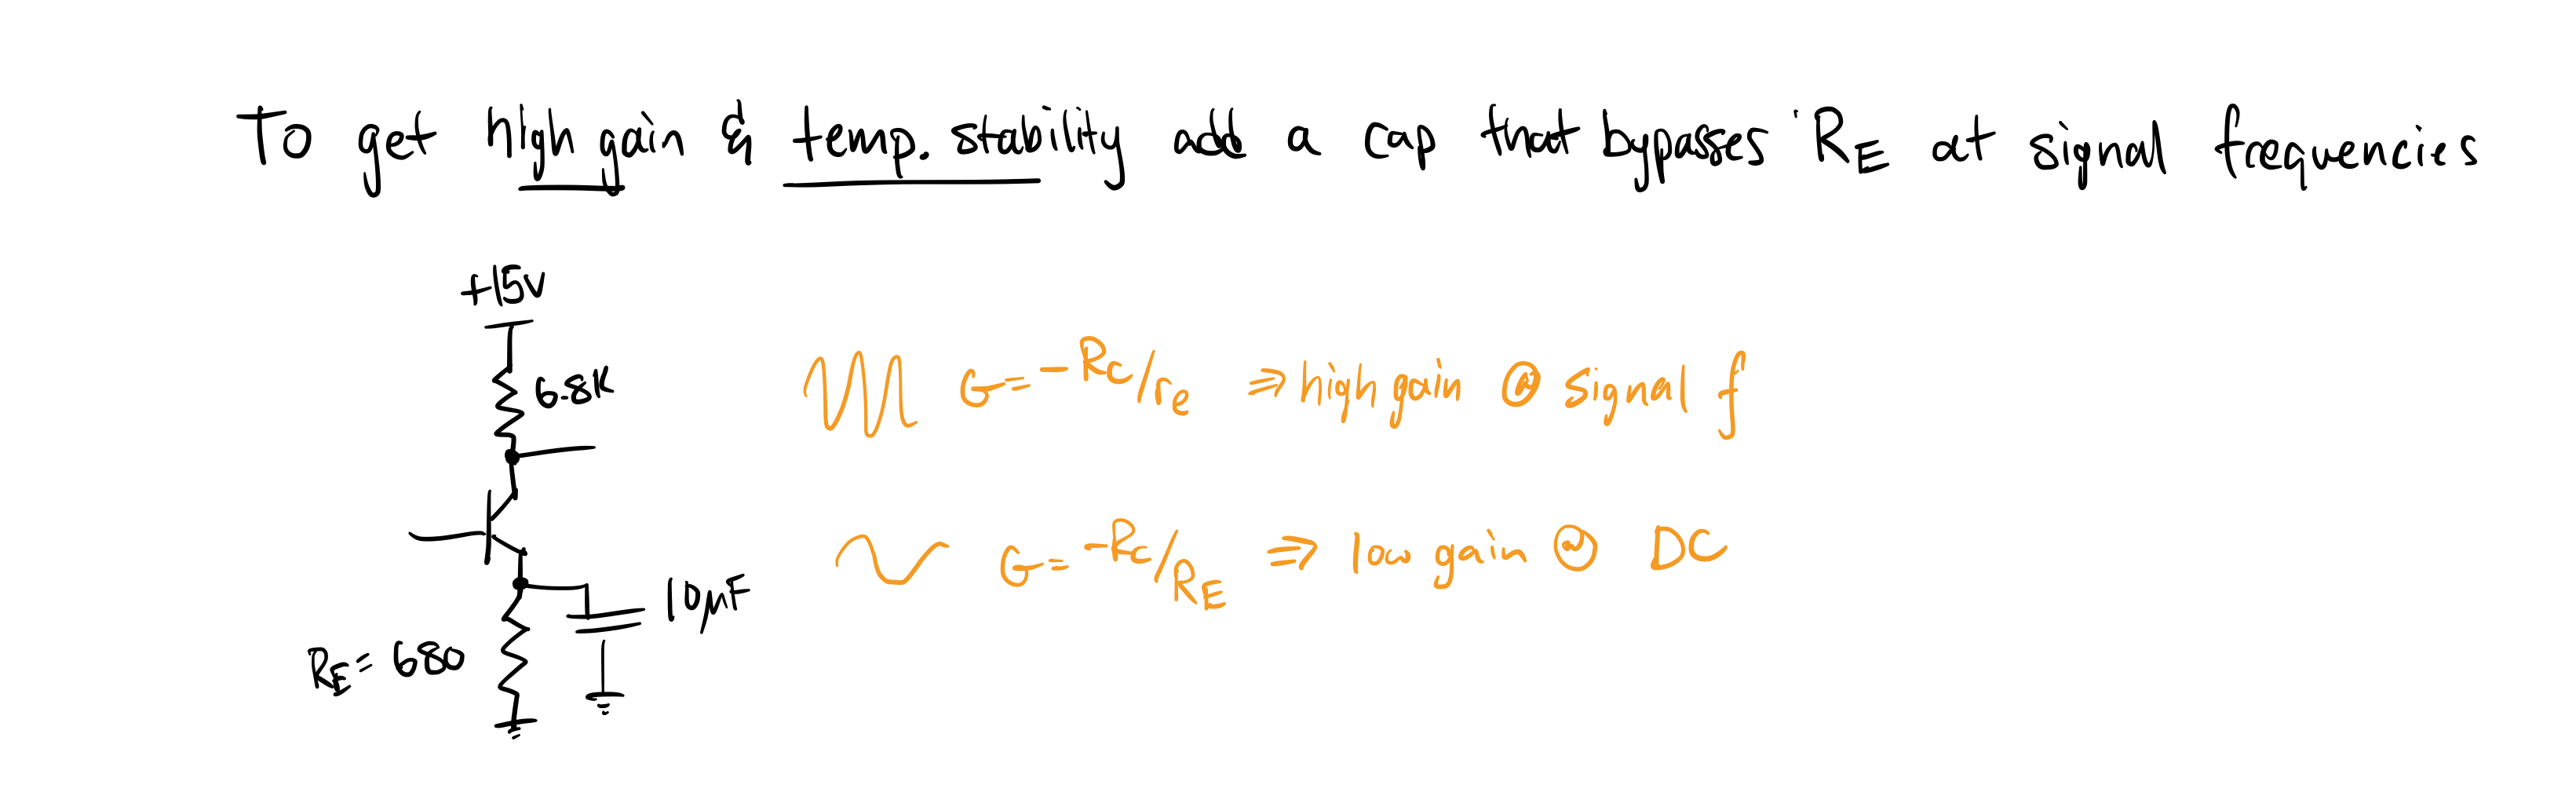 To get high gain & temp. stability add a cap that bypasses RE at signal frequencies
+15V
6.8K
G = -Rc/re ⇒ high gain @ signal f
G = -Rc/RE ⇒ low gain @ DC
10µF
RE = 680